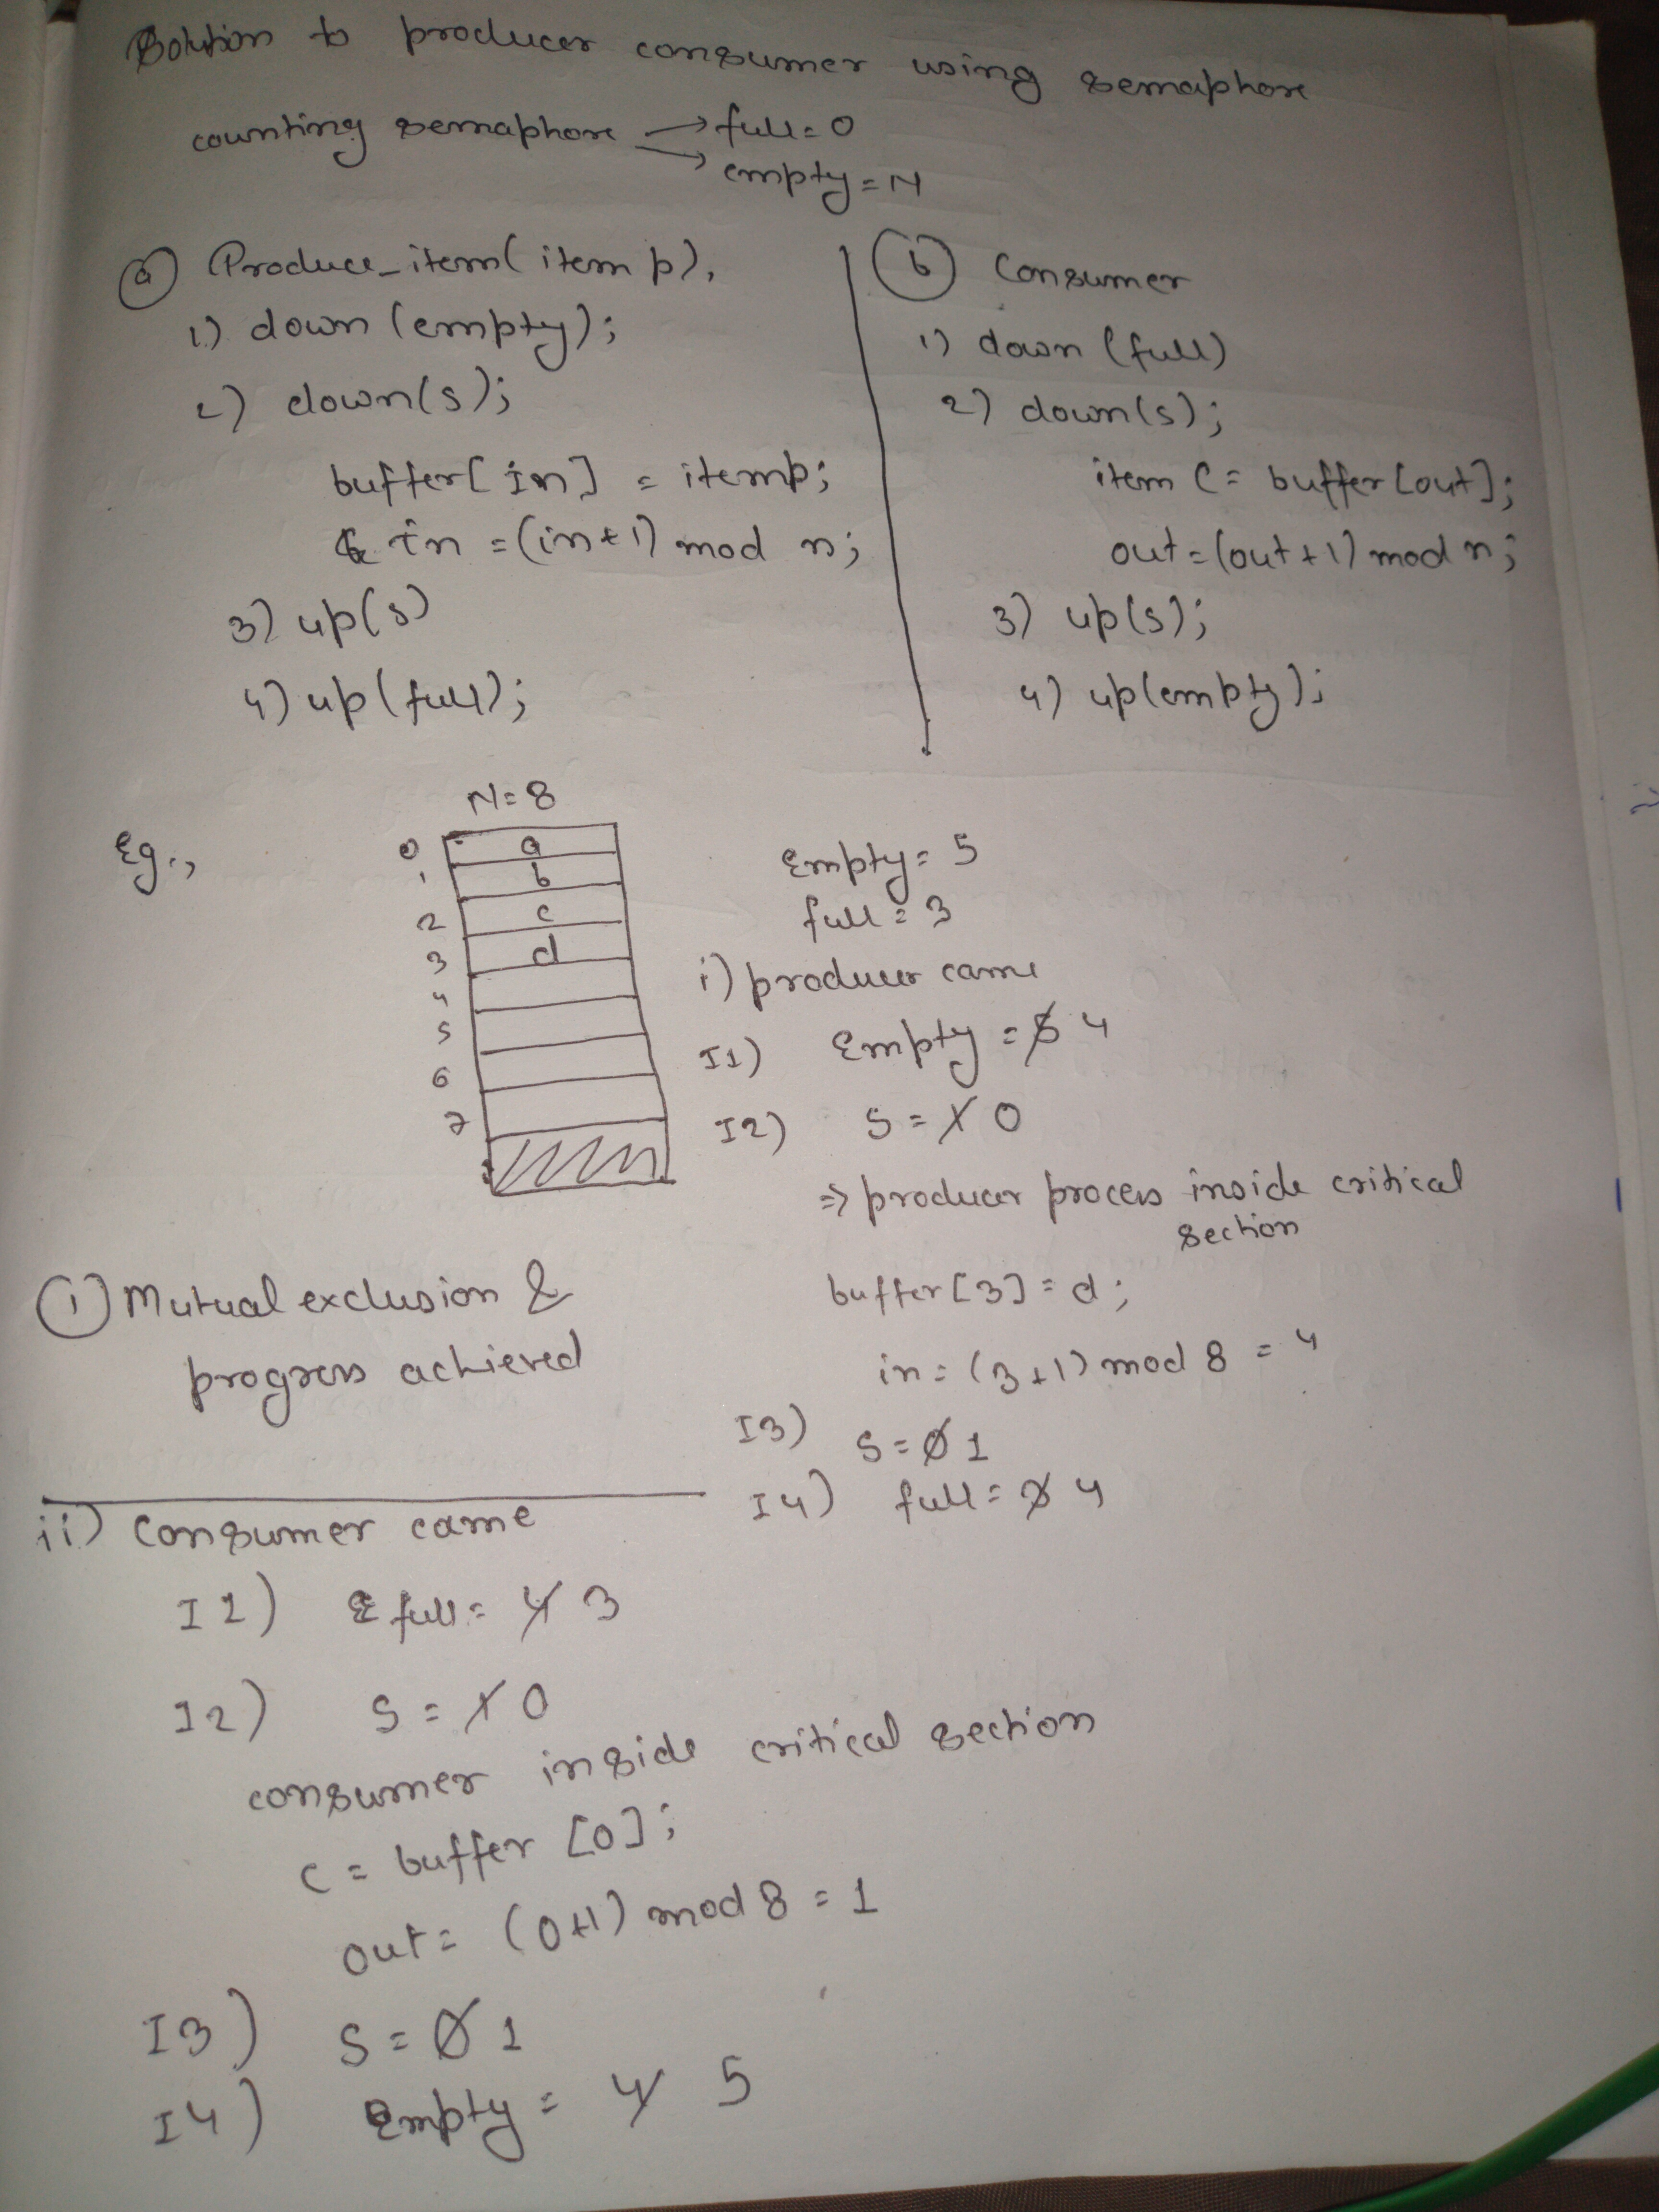 Solution to producer consumer using semaphore
counting semaphore → full = 0
→ empty = N
(a) Produce_item( item p),
1) down (empty);
2) down(s);
buffer[in] = itemp;
in = (in+1) mod n;
3) up(s)
4) up(full);
(b) Consumer
1) down (full)
2) down(s);
item C = buffer[out];
out = (out+1) mod n;
3) up(s);
4) up(empty);
Eg.,
N=8
0 a
1 b
2 c
3 d
4
5
6
7
Empty = 5
full = 3
i) producer came
I1) Empty = 5 4
I2) S = 1 0
⇒ producer process inside critical
section
buffer[3] = d;
in = (3+1) mod 8 = 4
I3) S = 0 1
I4) full = 3 4
(1) Mutual exclusion &
progress achieved
ii) consumer came
I1) full = 4 3
I2) S = 1 0
consumer inside critical section
C = buffer [0];
out = (0+1) mod 8 = 1
I3) S = 0 1
I4) Empty = 4 5